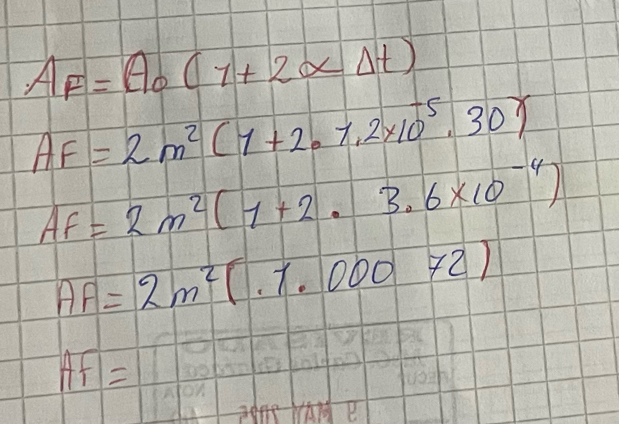 AF = A0 (1 + 2 ∝ Δt)
AF = 2 m² (1 + 2 . 1.2×10⁻⁵ . 30)
AF = 2 m² (1 + 2 . 3.6×10⁻⁴)
AF = 2 m² (.1.000 72)
AF =